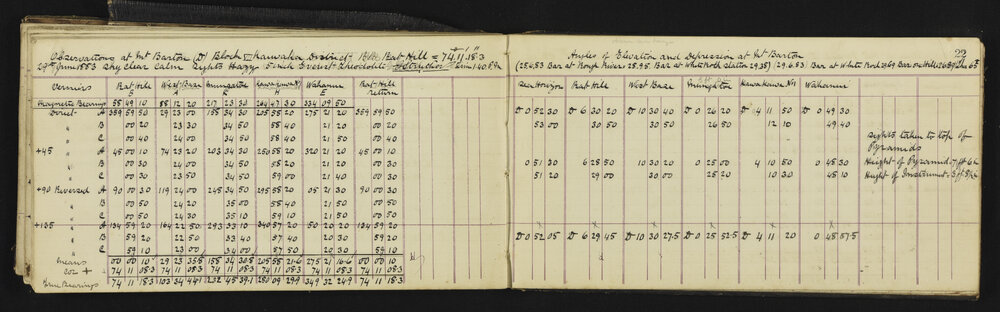 Observations at Mt Barton (D) Block VI Kawakawa District. Rat Hill = 74.11.18.3
29th June 1883 Sky clear Calm Lights Hazy 5 inch Everest Theodolite
Verniers Rat Hill West Base Kawakawa No 1 Waharau Rat Hill return
Magnetic Bearings 58 49 10 88 12 20 217 23 30 264 47 30 334 09 50
Direct A 359 59 50 29 23 00 158 34 30 205 58 20 275 21 20 359 59 50
" B 00 20 23 30 34 50 58 40 21 20 00 20
" C 00 40 24 00 34 50 58 40 21 50 00 40
+45 A 45 00 10 74 23 20 203 34 30 250 58 20 320 21 20 45 00 10
" B 00 30 24 00 34 50 58 20 21 20 00 30
" C 00 30 23 50 34 50 59 00 21 40 00 30
+90 Reversed A 90 00 30 119 24 00 248 34 50 295 58 20 05 21 30 90 00 30
" B 00 50 24 20 35 00 58 50 21 50 00 50
" C 00 50 24 30 35 10 59 10 21 50 00 50
+135 A 134 59 20 164 22 50 293 33 10 340 57 20 50 20 20 134 59 20
" B 59 20 22 50 33 40 57 40 20 30 59 20
" C 59 10 23 00 34 00 57 50 20 30 59 10
Means 00 00 10 29 23 35.8 158 34 30.8 205 58 21.6 275 21 16.6 00 00 10
Cor + 74 11 08.3 74 11 08.3 74 11 08.3 74 11 08.3 74 11 08.3 74 11 08.3
True Bearings 74 11 18.3 103 34 44.1 232 45 39.1 280 09 29.9 349 32 24.9 74 11 18.3
22
Angles of Elevation and Depression at Mt Barton
(28.6.83 Bar at Rough River 28.95. Bar at White Rock Station 29.35) (29.6.83
Sea Horizon Rat Hill West Base Kawakawa No 1 Waharau
D 0 52 30 D 6 30 20 D 10 30 40 D 0 26 20 D 4 11 50 D 0 49 30
53 00 30 50 30 50 26 50 12 10 49 40
Sights taken to top of
Pyramids
0 51 30 6 28 50 10 30 20 0 25 00 4 10 50 0 45 30 Height of Pyramid = 7 ft 6 in
51 20 29 00 30 00 25 20 10 30 45 10 Height of Instrument =
D 0 52 05 D 6 29 45 D 10 30 27.5 D 0 25 52.5 D 4 11 20 0 45 57.5